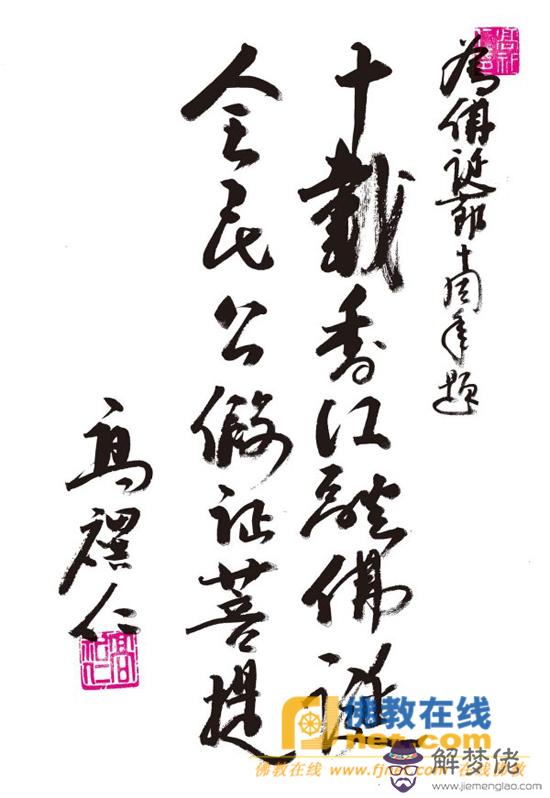 為佛誕節十周年題
十載香江佛誕
全民公假证菩提
高禩仁
佛教在线
net.com
佛教在线 www.fjnet.com 在线佛教
解梦佬
www.jiemenglao.com